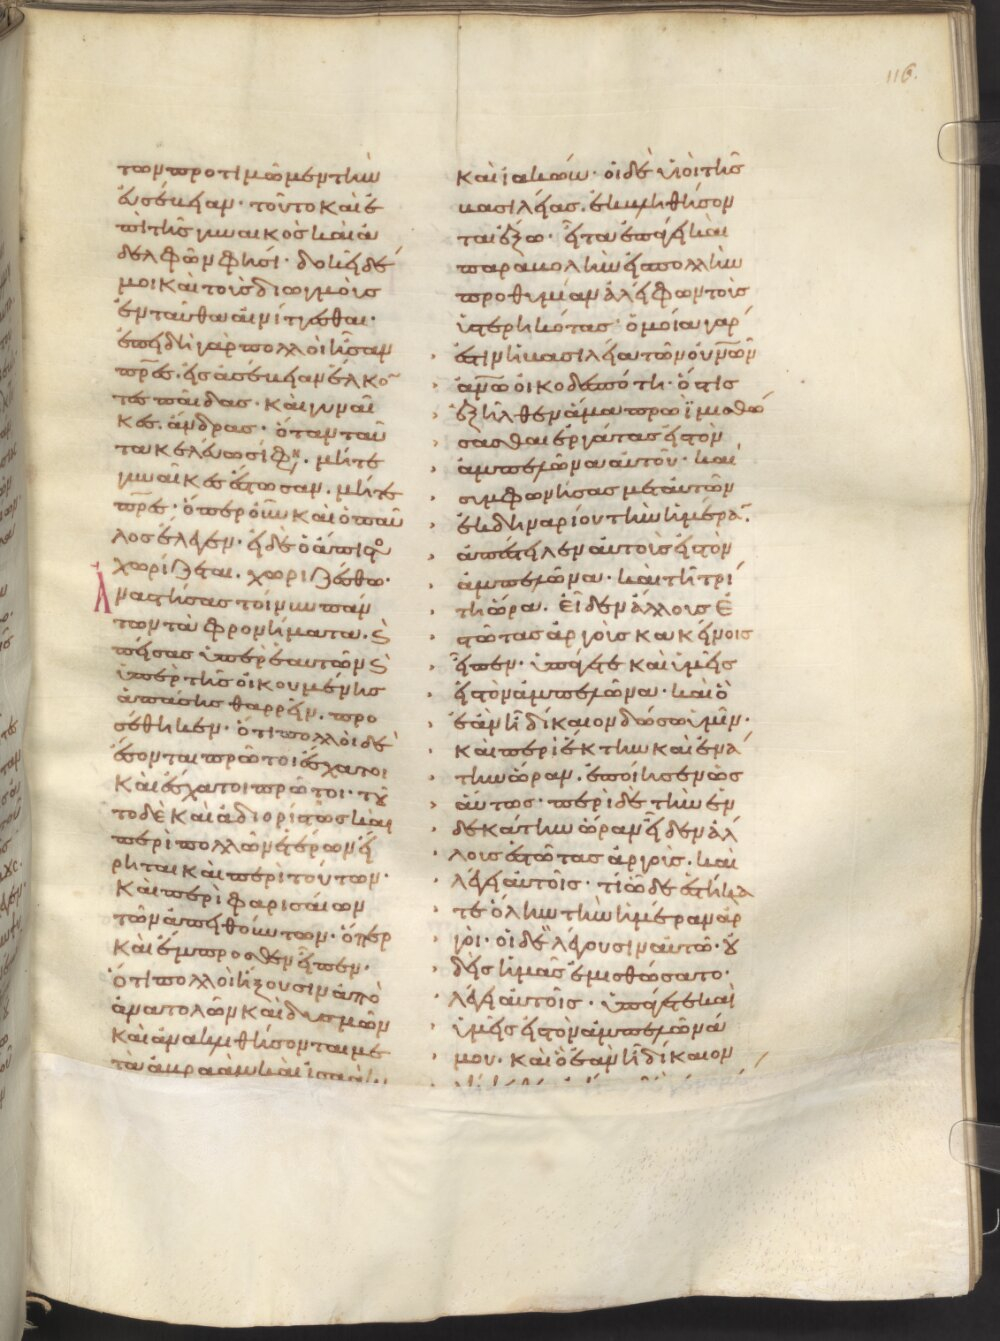 116.
των προτιμῶμεν τὴν
ἐυσέβειαν· τοῦτο καὶ ἐ
πὶ τῆς γυναικὸς καὶ ἀ
δελφῶν φησί· δοκεῖ δέ
μοι καὶ τοὺς διωγμοὺς
ἐνταῦθα αἰνίττεσθαι·
ἐπειδὴ γὰρ πολλοὶ ἦσαν
πρ̅ε̅ς· εἰς ἀσέβειαν ἕλκον
τες παῖδας· καὶ γυναῖ
κες ἄνδρας· ὅταν ταῦ
τα κελεύωσι φη· μήτε
γυναῖκες ἔστωσαν· μήτε
πρ̅ε̅ς· ὅπερ οὖν καὶ ὁ παῦ
λος ἔλεγεν· εἰ δὲ ὁ ἄπιστο
χωρίζεται· χωριζέσθω·
Ἀναστήσας τοίνυν πάν
των τὰ φρονήματα· καὶ
πείσας ὑπὲρ ἑαυτῶν καὶ
ὑπὲρ τῆς οἰκουμένης
ἁπάσης θαρρεῖν· προ
σέθηκεν· ὅτι πολλοὶ δὲ
ἔσονται πρῶτοι ἔσχατοι
καὶ ἔσχατοι πρῶτοι· τοῦ
το δὲ καὶ ἀδιορίστως καὶ
περὶ πολλῶν ἑτέρων εἴ
ρηται καὶ περὶ τούτων·
καὶ περὶ φαρισαίων
τῶν ἀπειθούντων· ὅπερ
καὶ ἔμπροσθεν εἶπεν·
ὅτι πολλοὶ ἥξουσιν ἀπὸ
ἀνατολῶν καὶ δυσμῶν
καὶ ἀνακληθήσονται με
τὰ ἀβραὰμ καὶ ἰσαὰκ
καὶ ἰακώβ· οἱ δὲ υἱοὶ τῆς
βασιλείας· ἐκβληθήσον
ται ἔξω· εἶτα ἐπάγει καὶ
παραβολὴν εἰς πολλὴν
προθυμίαν ἀλείφων τοὺς
ὑστερηκότας· ὁμοία γάρ
ἐστιν ἡ βασιλεία τῶν οὐ̅ν̅ῶν
ἀν̅ω̅ οἰκοδεσπότῃ· ὅστις
ἐξῆλθεν ἅμα πρωῒ μισθώ
σασθαι ἐργάτας εἰς τὸν
ἀμπελῶνα αὐτοῦ· καὶ
συμφωνήσας μετ αὐτῶν
ἐκ δηναρίου τὴν ἡμέραν·
ἀπέστειλεν αὐτοὺς εἰς τὸν
ἀμπελῶνα· καὶ τῇ τρί
τῃ ὥρᾳ· εἶδεν ἄλλους ἑ
στῶτας ἀργοὺς κακείνοις
εἶπεν· ὑπάγετε καὶ ὑμεῖς
εἰς τὸν ἀμπελῶνα· καὶ ὃ
ἐὰν ᾖ δίκαιον δώσω ὑμῖν·
καὶ περὶ ἕκτην καὶ ἐννά
την ὥραν· ἐποίησεν ὡς
αύτως· περὶ δὲ τὴν ἑν
δεκάτην ὥραν εἶδεν ἄλ
λους ἑστῶτας ἀργούς· καὶ
λέγει αὐτοῖς· τί ὧδε ἑστήκα
τε ὅλην τὴν ἡμέραν ἀρ
γοί· οἱ δὲ λέγουσιν αὐτῷ· οὐ
δεὶς ἡμᾶς ἐμισθώσατο·
λέγει αὐτοῖς· ὑπάγετε καὶ
ὑμεῖς εἰς τὸν ἀμπελῶνά
μου· καὶ ὃ ἐὰν ᾖ δίκαιον